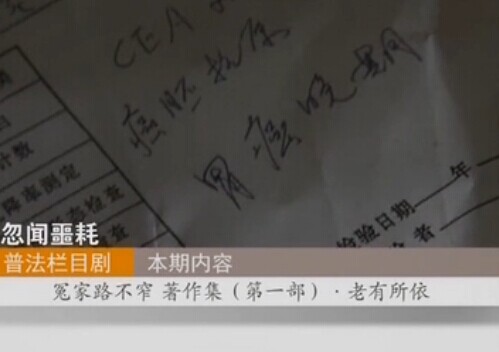 CEA
癌胚抗原
胃癌晚期
计数
降率测定
检查
检验日期 年
者
忽闻噩耗
普法栏目剧 本期内容
冤家路不窄 著作集(第一部)·老有所依